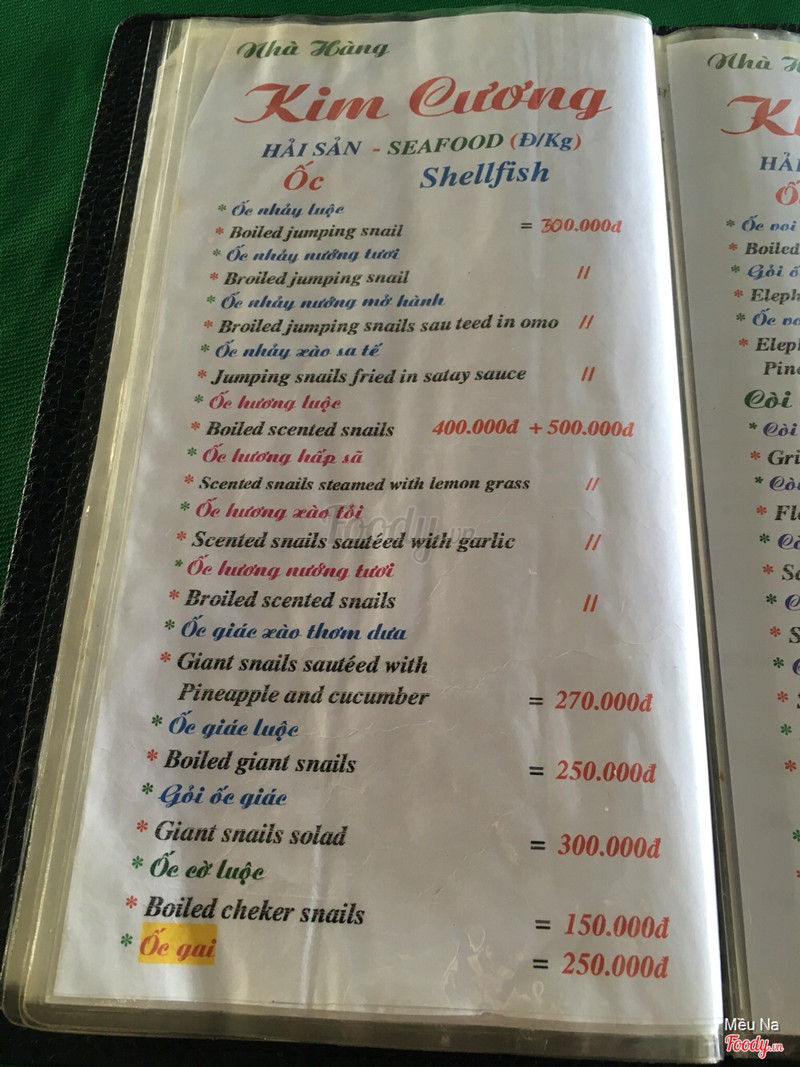 Nhà Hàng
Kim Cương
HẢI SẢN - SEAFOOD (Đ/Kg)
Ốc Shellfish
* Ốc nhảy luộc
* Boiled jumping snail = 300.000đ
* Ốc nhảy nướng tươi
* Broiled jumping snail //
* Ốc nhảy nướng mỡ hành
* Broiled jumping snails sau teed in omo //
* Ốc nhảy xào sa tế
* Jumping snails fried in satay sauce //
* Ốc hương luộc
* Boiled scented snails 400.000đ + 500.000đ
* Ốc hương hấp sã
* Scented snails steamed with lemon grass //
* Ốc hương xào tỏi
* Scented snails sautéed with garlic //
* Ốc hương nướng tươi
* Broiled scented snails //
* Ốc giác xào thơm dưa
* Giant snails sautéed with
Pineapple and cucumber = 270.000đ
* Ốc giác luộc
* Boiled giant snails = 250.000đ
* Gỏi ốc giác
* Giant snails solad = 300.000đ
* Ốc cờ luộc
* Boiled cheker snails = 150.000đ
* Ốc gai = 250.000đ
Nhà
HẢI
* Ốc voi
* Boiled
* Gỏi
* Eleph
* Ốc
* Eleph
Pine
Còi
* Còi
* Gri
Foody.vn
Mều Na
Foody.vn